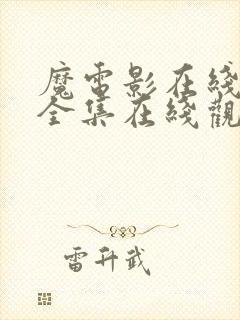 魔電影在綫
全集在綫觀
雷升武